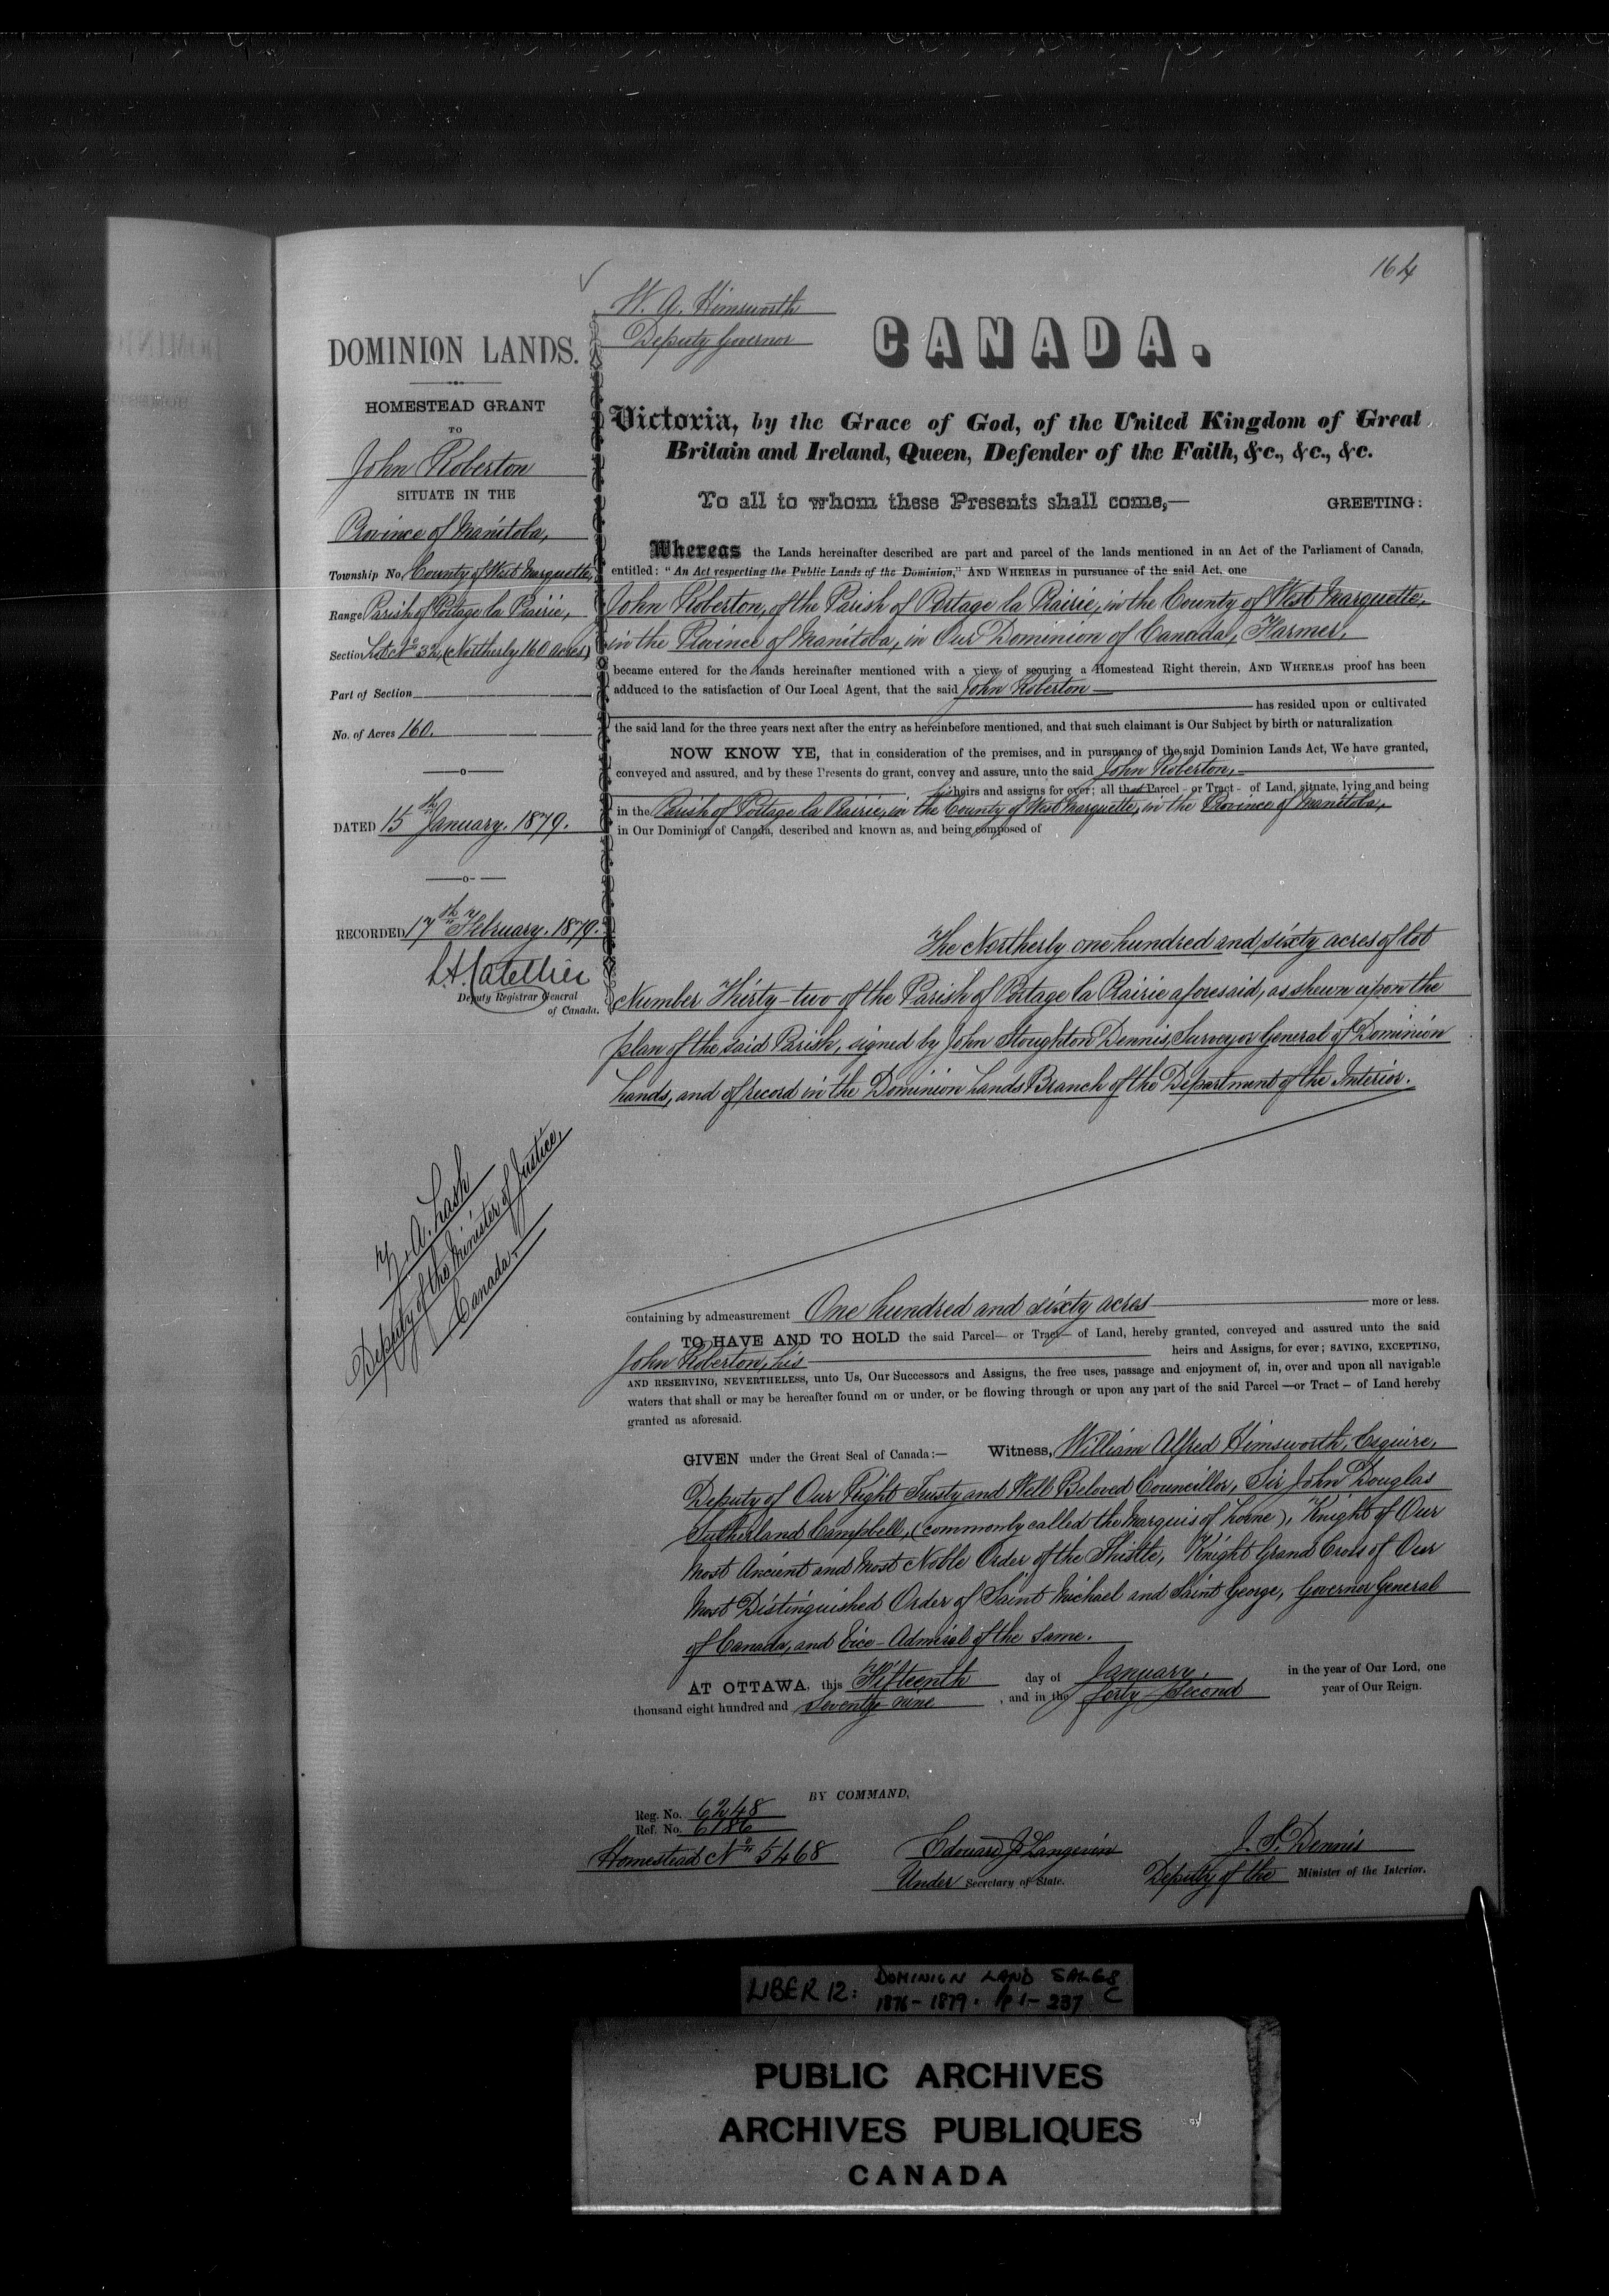 164
W. A. Himsworth
Deputy Governor
CANADA.
DOMINION LANDS.
HOMESTEAD GRANT
TO
John Roberton
SITUATE IN THE
Province of Manitoba,
Township No. County of West Marquette,
Range Parish of Portage la Prairie,
Section Lot No 32, (Northerly 160 acres)
Part of Section
No. of Acres 160.
DATED 15th January. 1879.
RECORDED 17th February. 1879.
L. A. Catellier
Deputy Registrar General
of Canada.
Z. A. Lash
Deputy of the Minister of Justice,
Canada.
Victoria, by the Grace of God, of the United Kingdom of Great
Britain and Ireland, Queen, Defender of the Faith, &c., &c., &c.
To all to whom these Presents shall come,— GREETING:
Whereas the Lands hereinafter described are part and parcel of the lands mentioned in an Act of the Parliament of Canada,
entitled: "An Act respecting the Public Lands of the Dominion," AND WHEREAS in pursuance of the said Act, one
John Roberton, of the Parish of Portage la Prairie, in the County of West Marquette,
in the Province of Manitoba, in Our Dominion of Canada, Farmer,
became entered for the lands hereinafter mentioned with a view of securing a Homestead Right therein, AND WHEREAS proof has been
adduced to the satisfaction of Our Local Agent, that the said John Roberton
has resided upon or cultivated
the said land for the three years next after the entry as hereinbefore mentioned, and that such claimant is Our Subject by birth or naturalization
NOW KNOW YE, that in consideration of the premises, and in pursuance of the said Dominion Lands Act, We have granted,
conveyed and assured, and by these Presents do grant, convey and assure, unto the said John Roberton,
his heirs and assigns for ever; all that Parcel - or Tract - of Land, situate, lying and being
in the Parish of Portage la Prairie, in the County of West Marquette, in the Province of Manitoba,
in Our Dominion of Canada, described and known as, and being composed of
The Northerly one hundred and sixty acres of lot
Number Thirty-two of the Parish of Portage la Prairie aforesaid, as shewn upon the
plan of the said Parish, signed by John Stoughton Dennis, Surveyor General of Dominion
Lands, and of record in the Dominion Lands Branch of the Department of the Interior.
containing by admeasurement One hundred and sixty acres more or less.
TO HAVE AND TO HOLD the said Parcel— or Tract— of Land, hereby granted, conveyed and assured unto the said
John Roberton, his heirs and Assigns, for ever; SAVING, EXCEPTING,
AND RESERVING, NEVERTHELESS, unto Us, Our Successors and Assigns, the free uses, passage and enjoyment of, in, over and upon all navigable
waters that shall or may be hereafter found on or under, or be flowing through or upon any part of the said Parcel —or Tract – of Land hereby
granted as aforesaid.
GIVEN under the Great Seal of Canada:— Witness, William Alfred Himsworth, Esquire,
Deputy of Our Right Trusty and Well Beloved Councillor, Sir John Douglas
Sutherland Campbell, (commonly called the Marquis of Lorne), Knight of Our
Most Ancient and Most Noble Order of the Thistle, Knight Grand Cross of Our
Most Distinguished Order of Saint Michael and Saint George, Governor General
of Canada, and Vice-Admiral of the same.
AT OTTAWA, this Fifteenth day of January, in the year of Our Lord, one
thousand eight hundred and seventy-nine, and in the forty-second year of Our Reign.
BY COMMAND,
Reg. No. 6248
Ref. No. 6186
Homestead No 5468
Edouard J. Langevin
Under Secretary of State.
J. S. Dennis
Deputy of the Minister of the Interior.
LIBER 12: DOMINION LAND SALES
1876-1879. p 1-237 C
PUBLIC ARCHIVES
ARCHIVES PUBLIQUES
CANADA